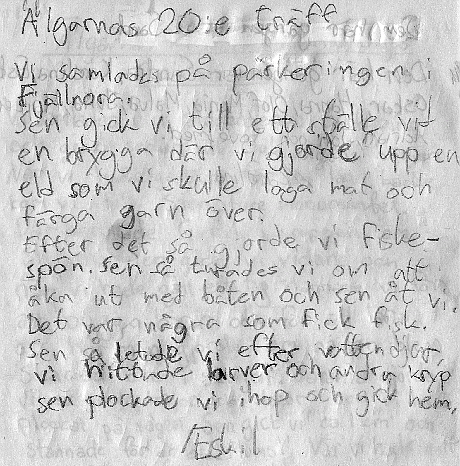 Älgarnas 20:e träff
Vi samlades på parkeringen i
Fjällnora.
Sen gick vi till ett ställe vid
en brygga där vi gjorde upp en
eld som vi skulle laga mat och
färga garn över.
Efter det så gjorde vi fiske-
spön. Sen så turades vi om att
åka ut med båten och sen åt vi.
Det var några som fick fisk.
Sen så letade vi efter vattendjur,
vi hittade larver och andra kryp
sen plockade vi ihop och gick hem.
/Eskil